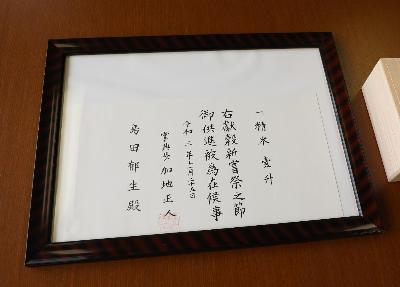 一精米壹升
右献穀新嘗祭之節
御供進被為在候事
令和二年十一月二十五日
掌典長 加地正人
島田郁生殿